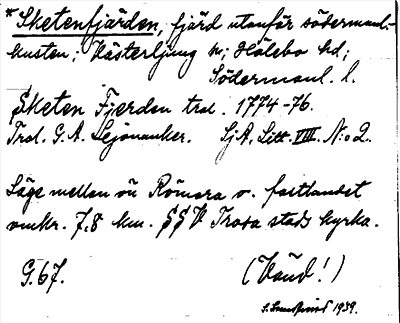 *Sketenfjärden, fjärd utanför södermanl.-
kusten; Västerljung sn; Hölebo hd;
Södermanl. l.
Sketen Fjerden trol. 1774-76.
Trol. G. A. Lejonanker. SjA, Litt. VIII. N:o 2.
Läge mellan ön Römora o. fastlandet
omkr. 7,8 km. SSV Trosa stads kyrka.
G. 67. (Vänd!)
1939.